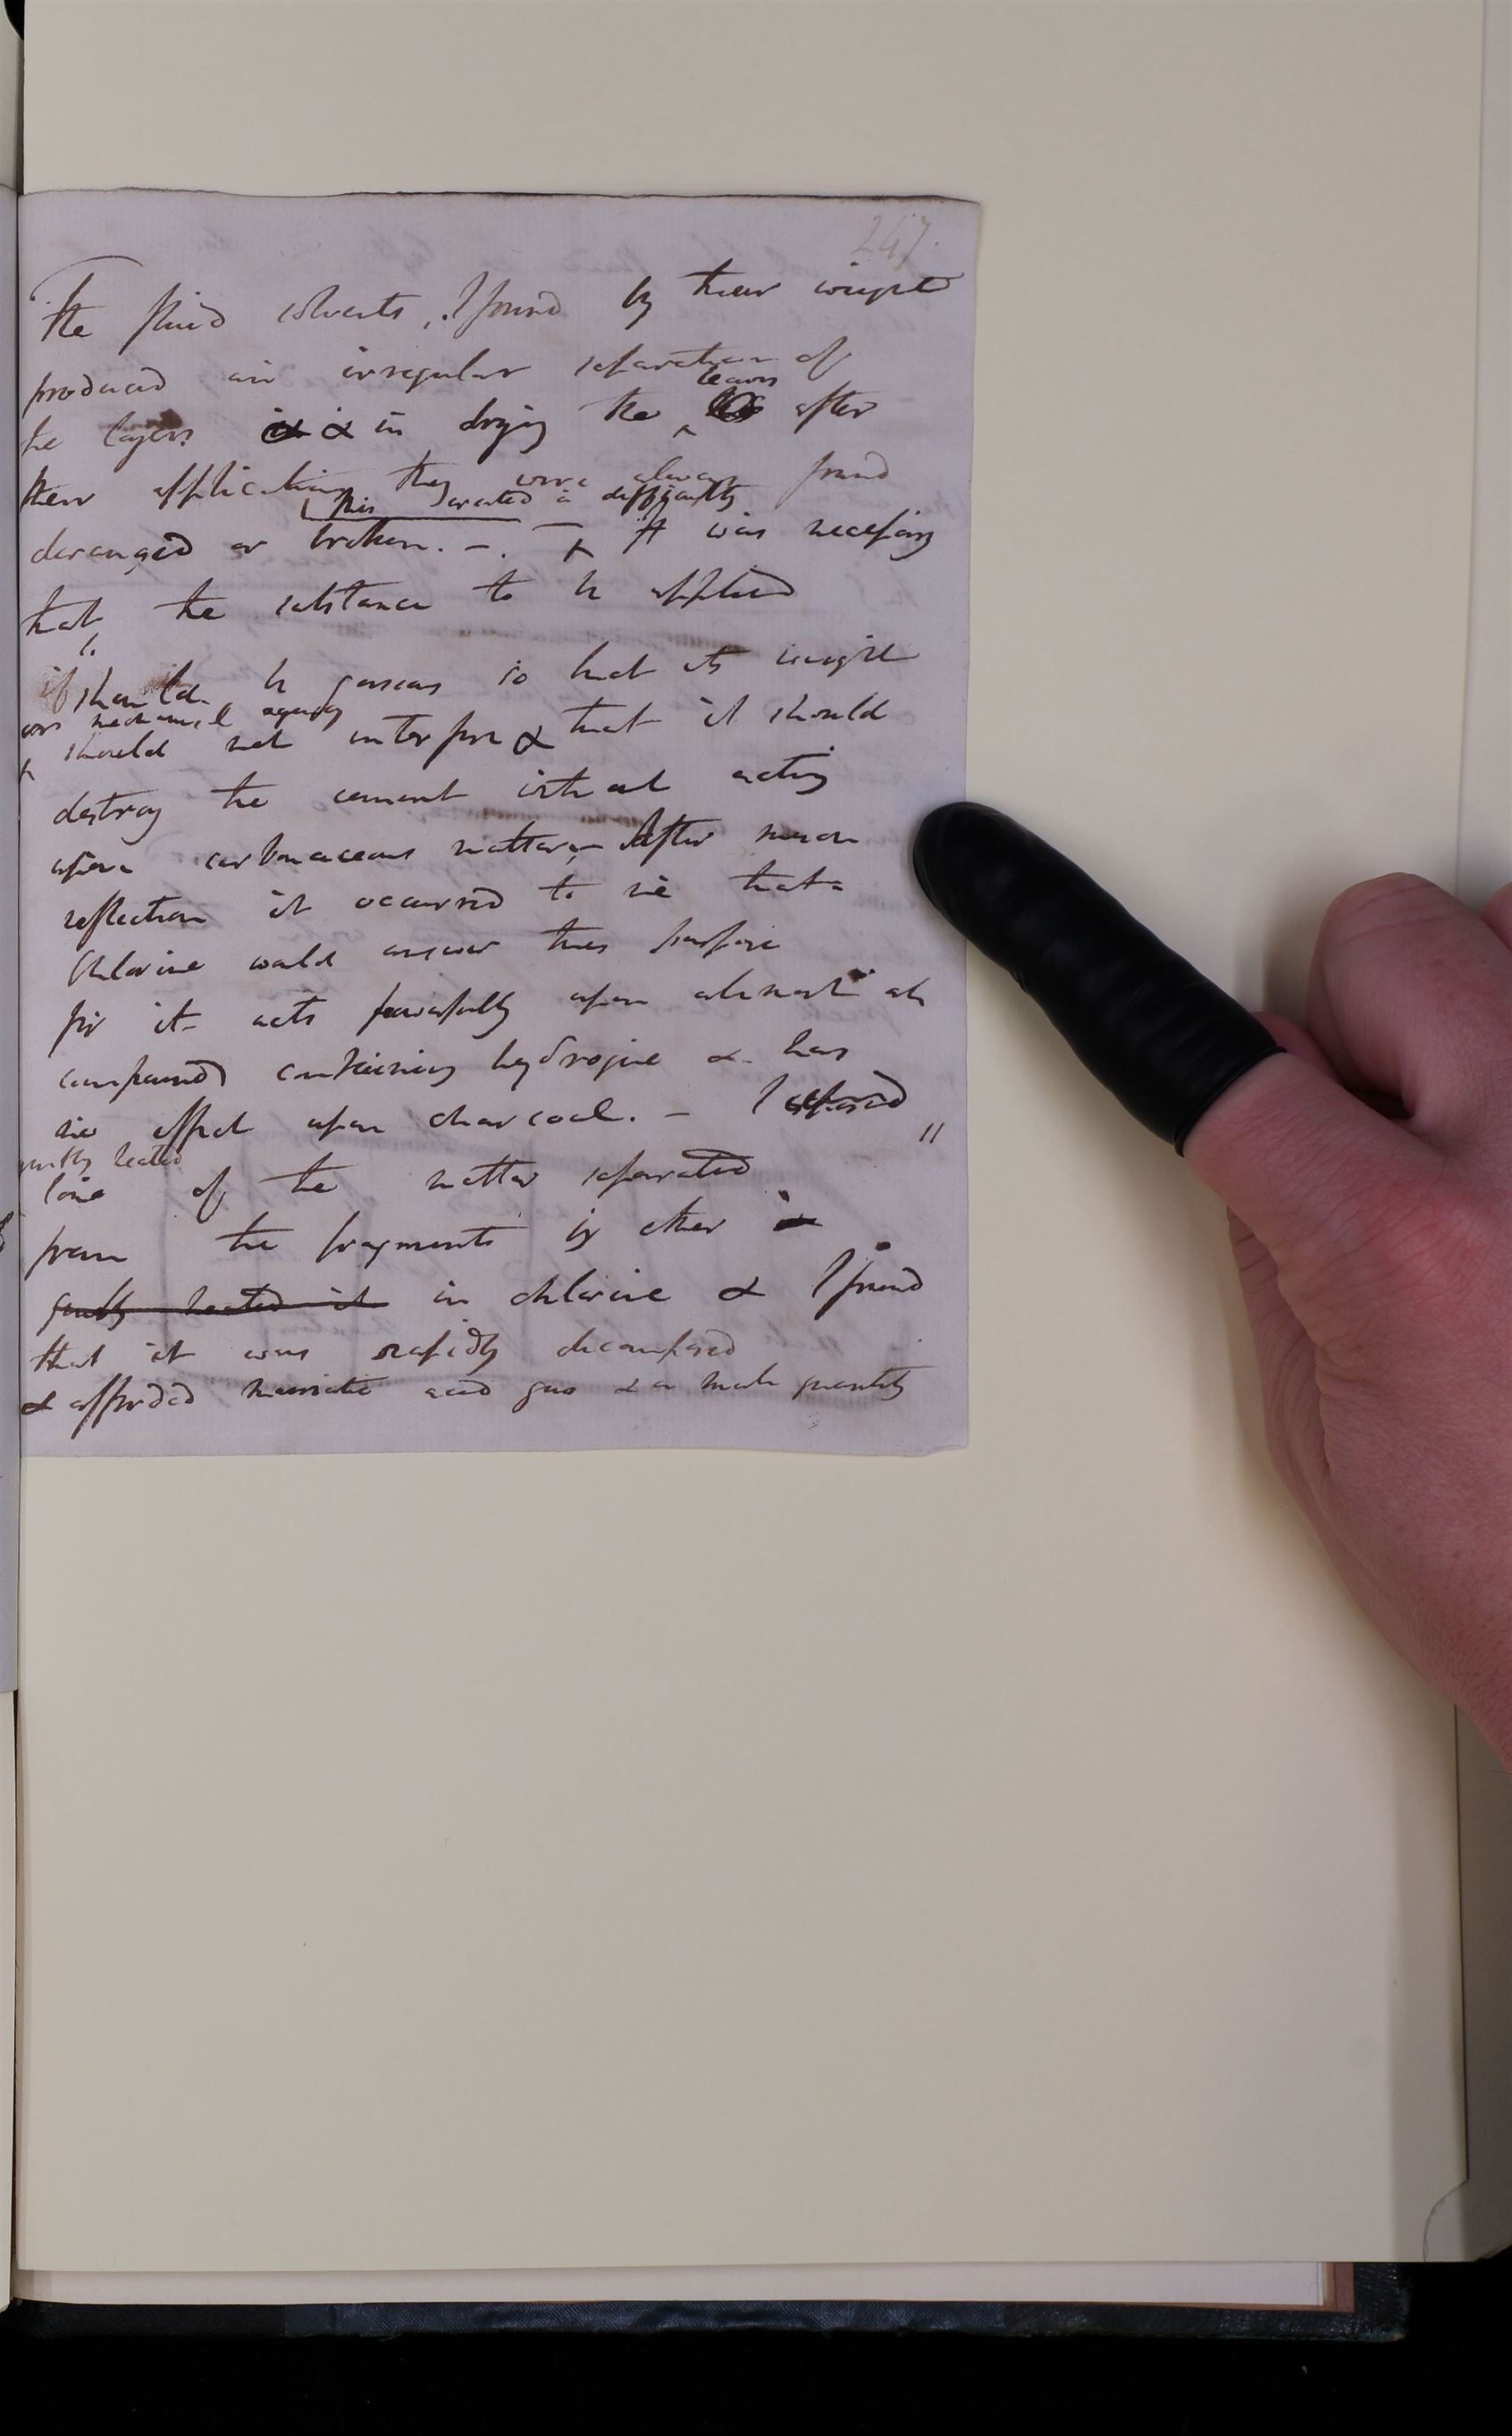 247.
The fluid solvents, I found by their weight
produced an irregular separation of
leaves
the layers & in drying the after
their application they were always found
this created a difficulty
deranged or broken. – . – It was necessary
that the substance to be applied
it should be gaseous so that its weight
or mechanical agency
should not interfere & that it should
destroy the cement without acting
upon carbonaceous matter, – After much
reflection it occurred to me that
Chlorine would answer this purpose
for it acts powerfully upon almost all
compounds containing hydrogene & has
no effect upon charcoal. – I exposed
gently heated
some of the matter separated
from the fragments by ether in
gently heated it in chlorine & I found
that it was rapidly decomposed
& afforded muriatic acid gas & a small quantity